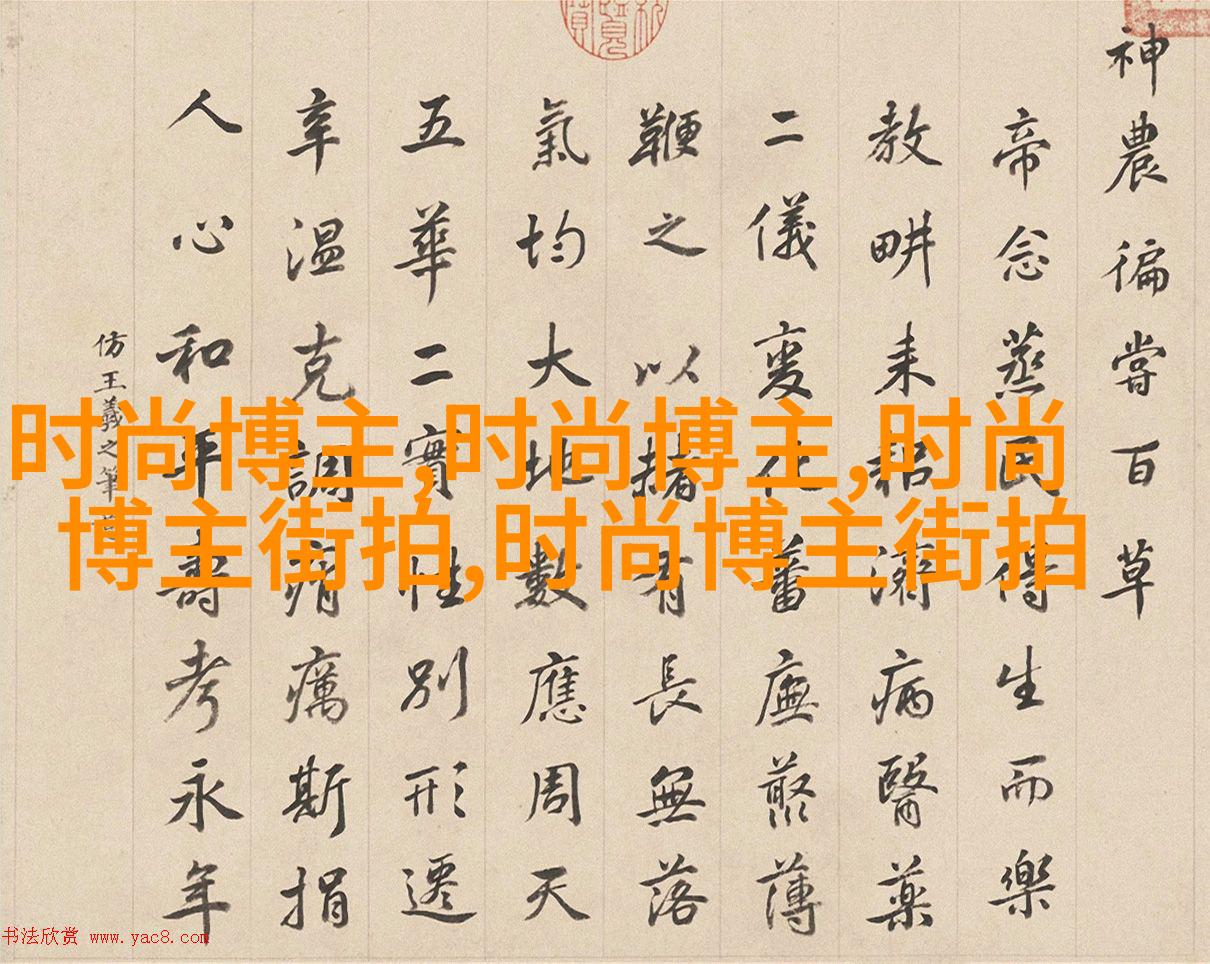 神農徧嘗百草
帝念蒸民得生而樂
教畊耒耜濟病醫藥
二儀變化蕃廡藂薄
鞭之以赭有長無落
氣均大地數應周天
五華二實性別形遷
辛温克調痟癘斯捐
人心和平壽考永年
仿王羲之筆
时尚博主,时尚博主,时尚
博主街拍,时尚博主街拍
书法欣赏 www.yac8.com